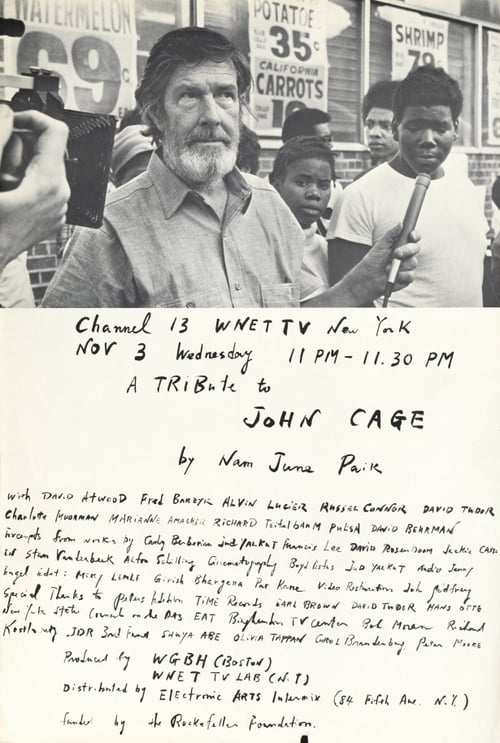 WATERMELON
69¢
POTATOE
35¢
CALIFORNIA
CARROTS
SHRIMP
Channel 13 WNET TV New York
NOV 3 Wednesday 11 PM - 11.30 PM
A TRIBUTE to
JOHN CAGE
by Nam June Paik
with DAVID AtwooD FReD BARZYK ALVIN LUCIER RUSSEL CONNOR DAVID TUDOR
Charlotte MOORMAN MARIANNE AMACHER RICHARD TeitelbauM PULSA DAVID BEHRMAN
Excerpts from works by Cathy Berberian Jud YALKUT Francis Lee DAVID Rosenboom Jackie CASS
EN Stan Vanderbeek Alton Schilling Cinematography Boyd Estus JuD YALKUT Audio Jerry
Engel Edit: Mickey LEMLE Girish Bhargava Pat Kane Video Restoration John Godfrey
Special Thanks to Peters Edition TIME Records EARL BROWN DAVID TUDOR HANS OTTE
New York State Council on the ARTS EAT Binghamton TV center Bob Moran Richard
Kostelanetz JDR 3rd Fund SHUYA ABE OLIVIA TAPPAN Carol Brandenburg Peter MOORE
Produced by WGBH (BOSTON)
WNET TV LAB (N.Y)
Distributed by Electronic ARTS Intermix (84 Fifth Ave. N.Y.)
funded by the Rockefeller Foundation.